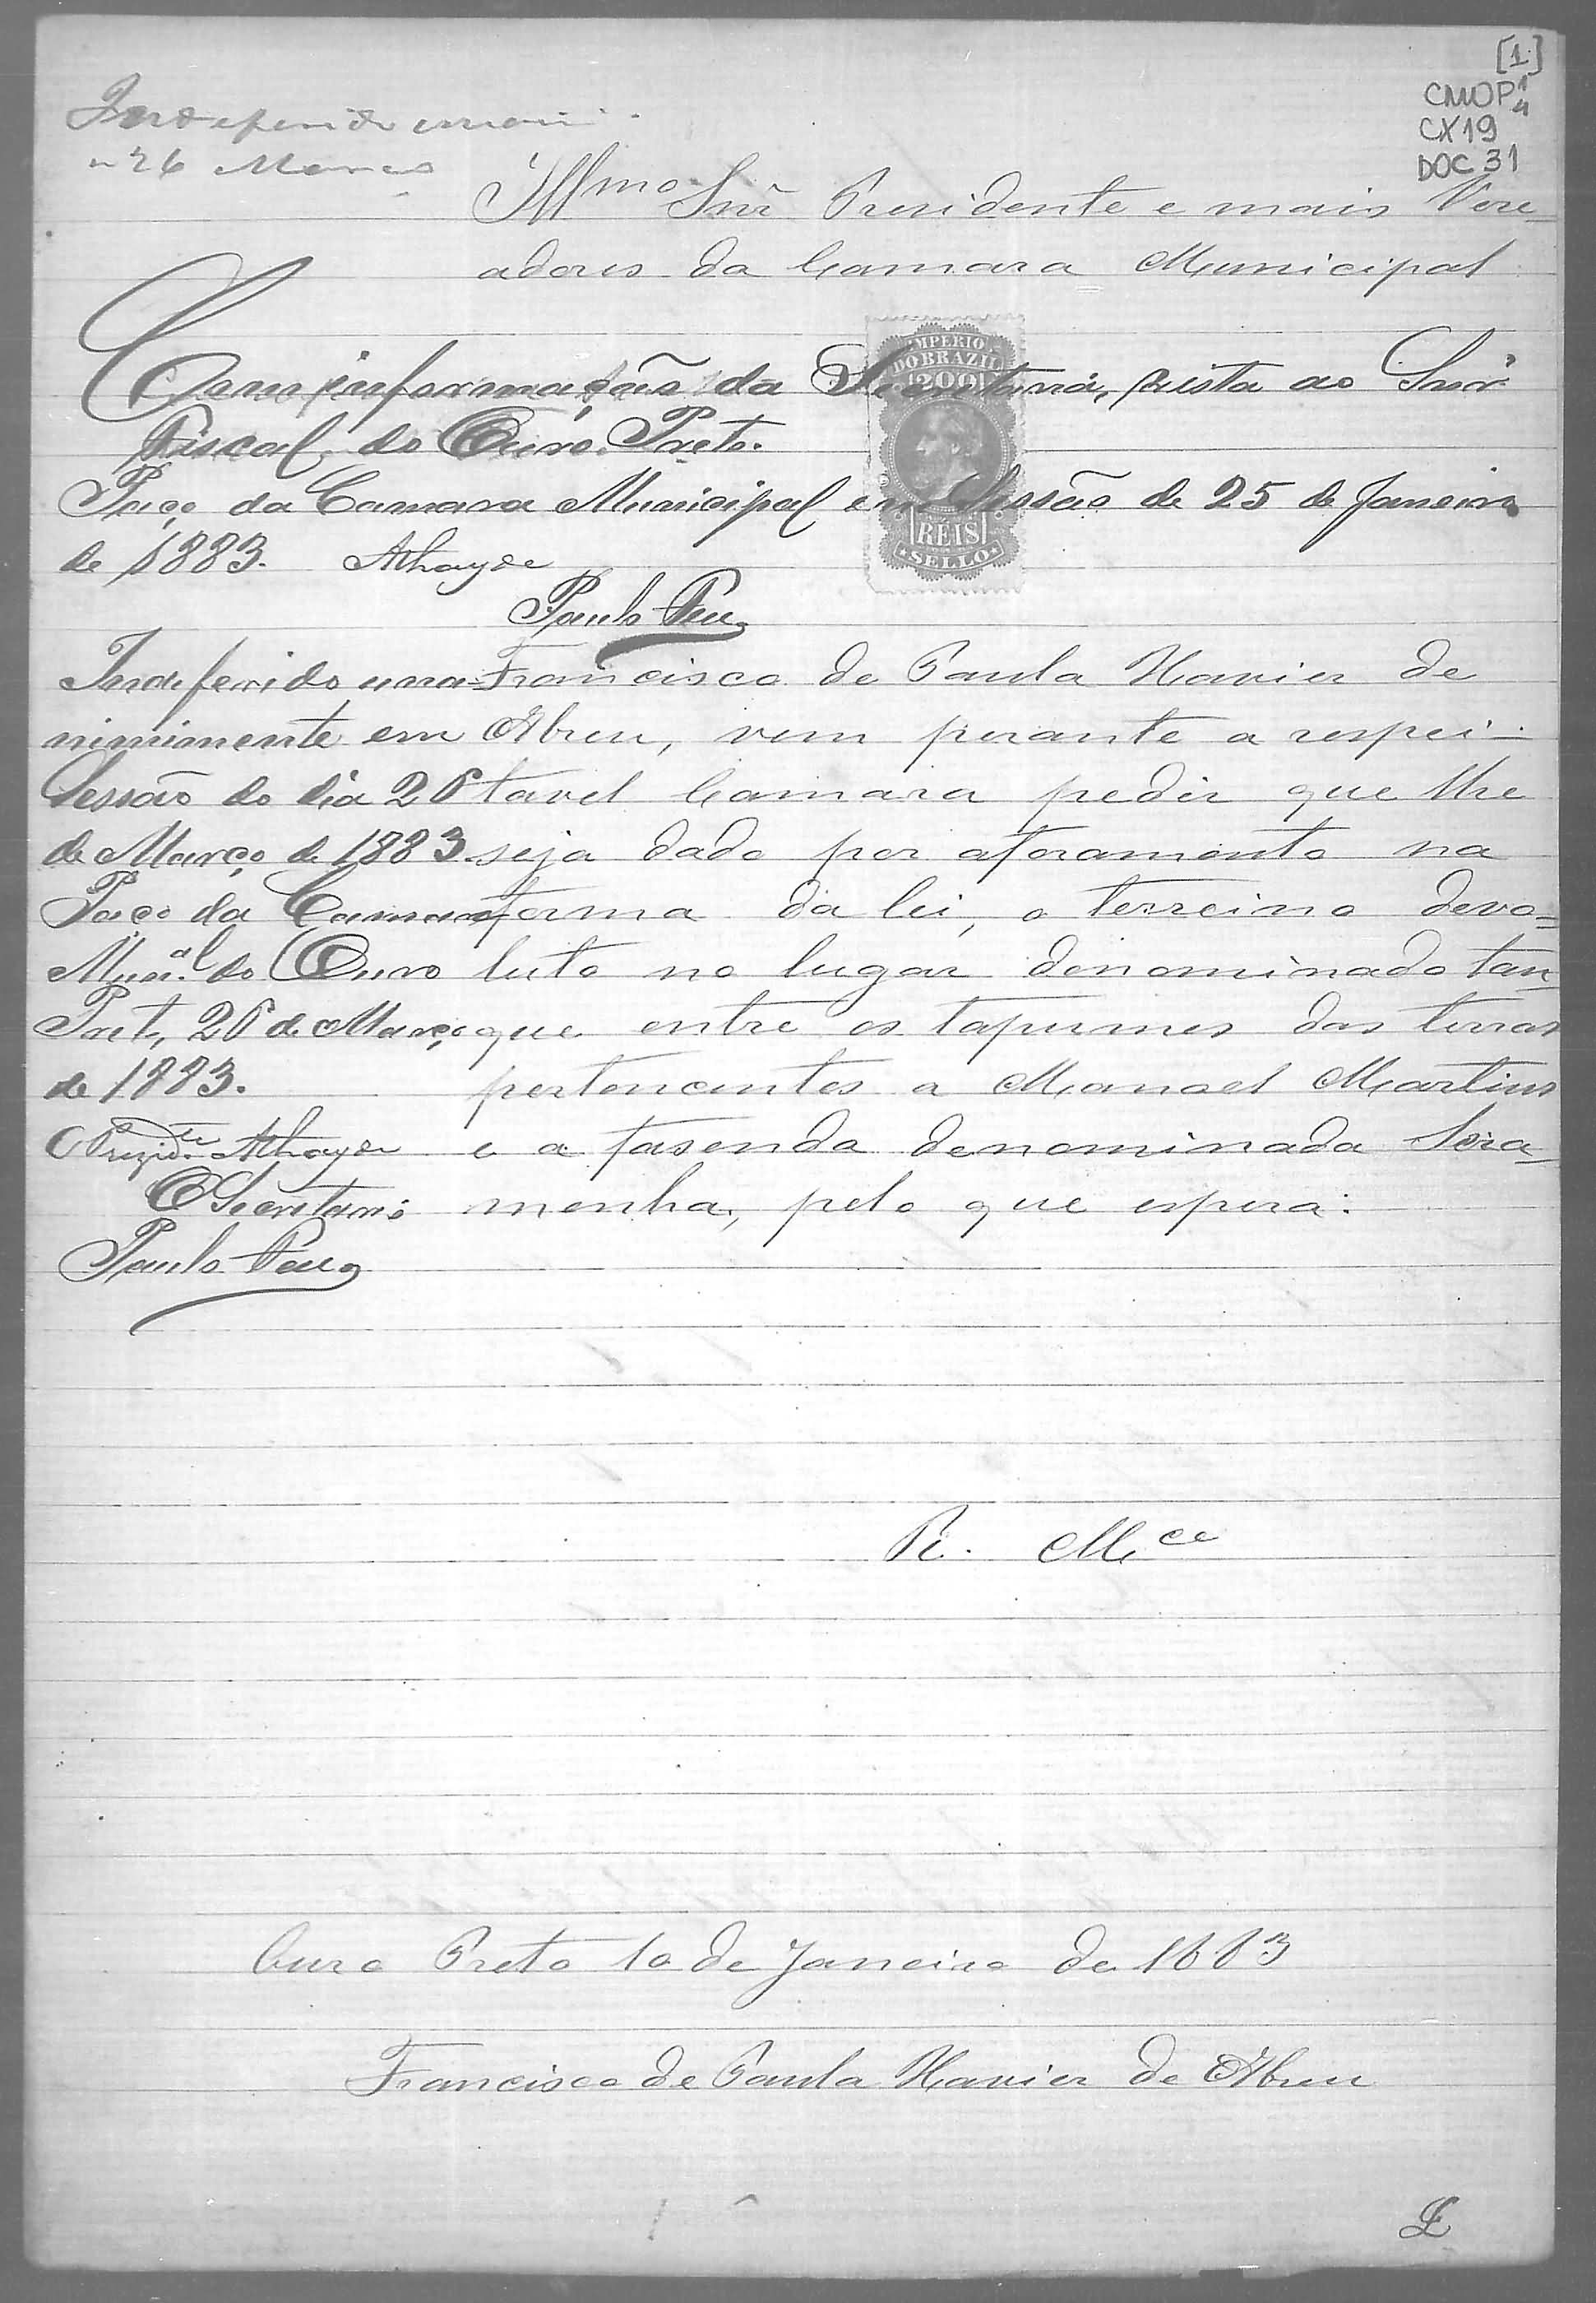 [1]
CMOP 1/4
CX19
DOC 31
Indeferido unani
26 Março
Illmo Snr̃ Presidente e mais Vere-
adores da Camara Municipal
Com informação da Secretaria, vista ao Snr̃
Fiscal do Ouro Preto.
Paço da Camara Municipal em Sessão de 25 de Janeiro
de 1883. Athayde
Paulo
IMPERIO
DO BRAZIL
200
REIS
SELLO
Indeferido una-
nimimente em
Sessão do dia 26
de Março de 1883.
Paço da Camara
Munal. do Ouro
Preto, 26 de Março
de 1883.
O Prezide. Athayde
O Secretario
Paulo
Francisco de Paula Xavier de
Abreu, vem perante a respei-
tavel Camara pedir que lhe
seja dado por aforamento na
forma da lei, o terreino devo-
luto no lugar denominado tan-
que entre os tapumes das terras
pertencentes a Manoel Martins
e a fasenda denominada Sera-
menha, pelo que espera:
R. Mce
Ouro Preto 10 de Janeiro de 1883
Francisco de Paula Xavier de Abreu